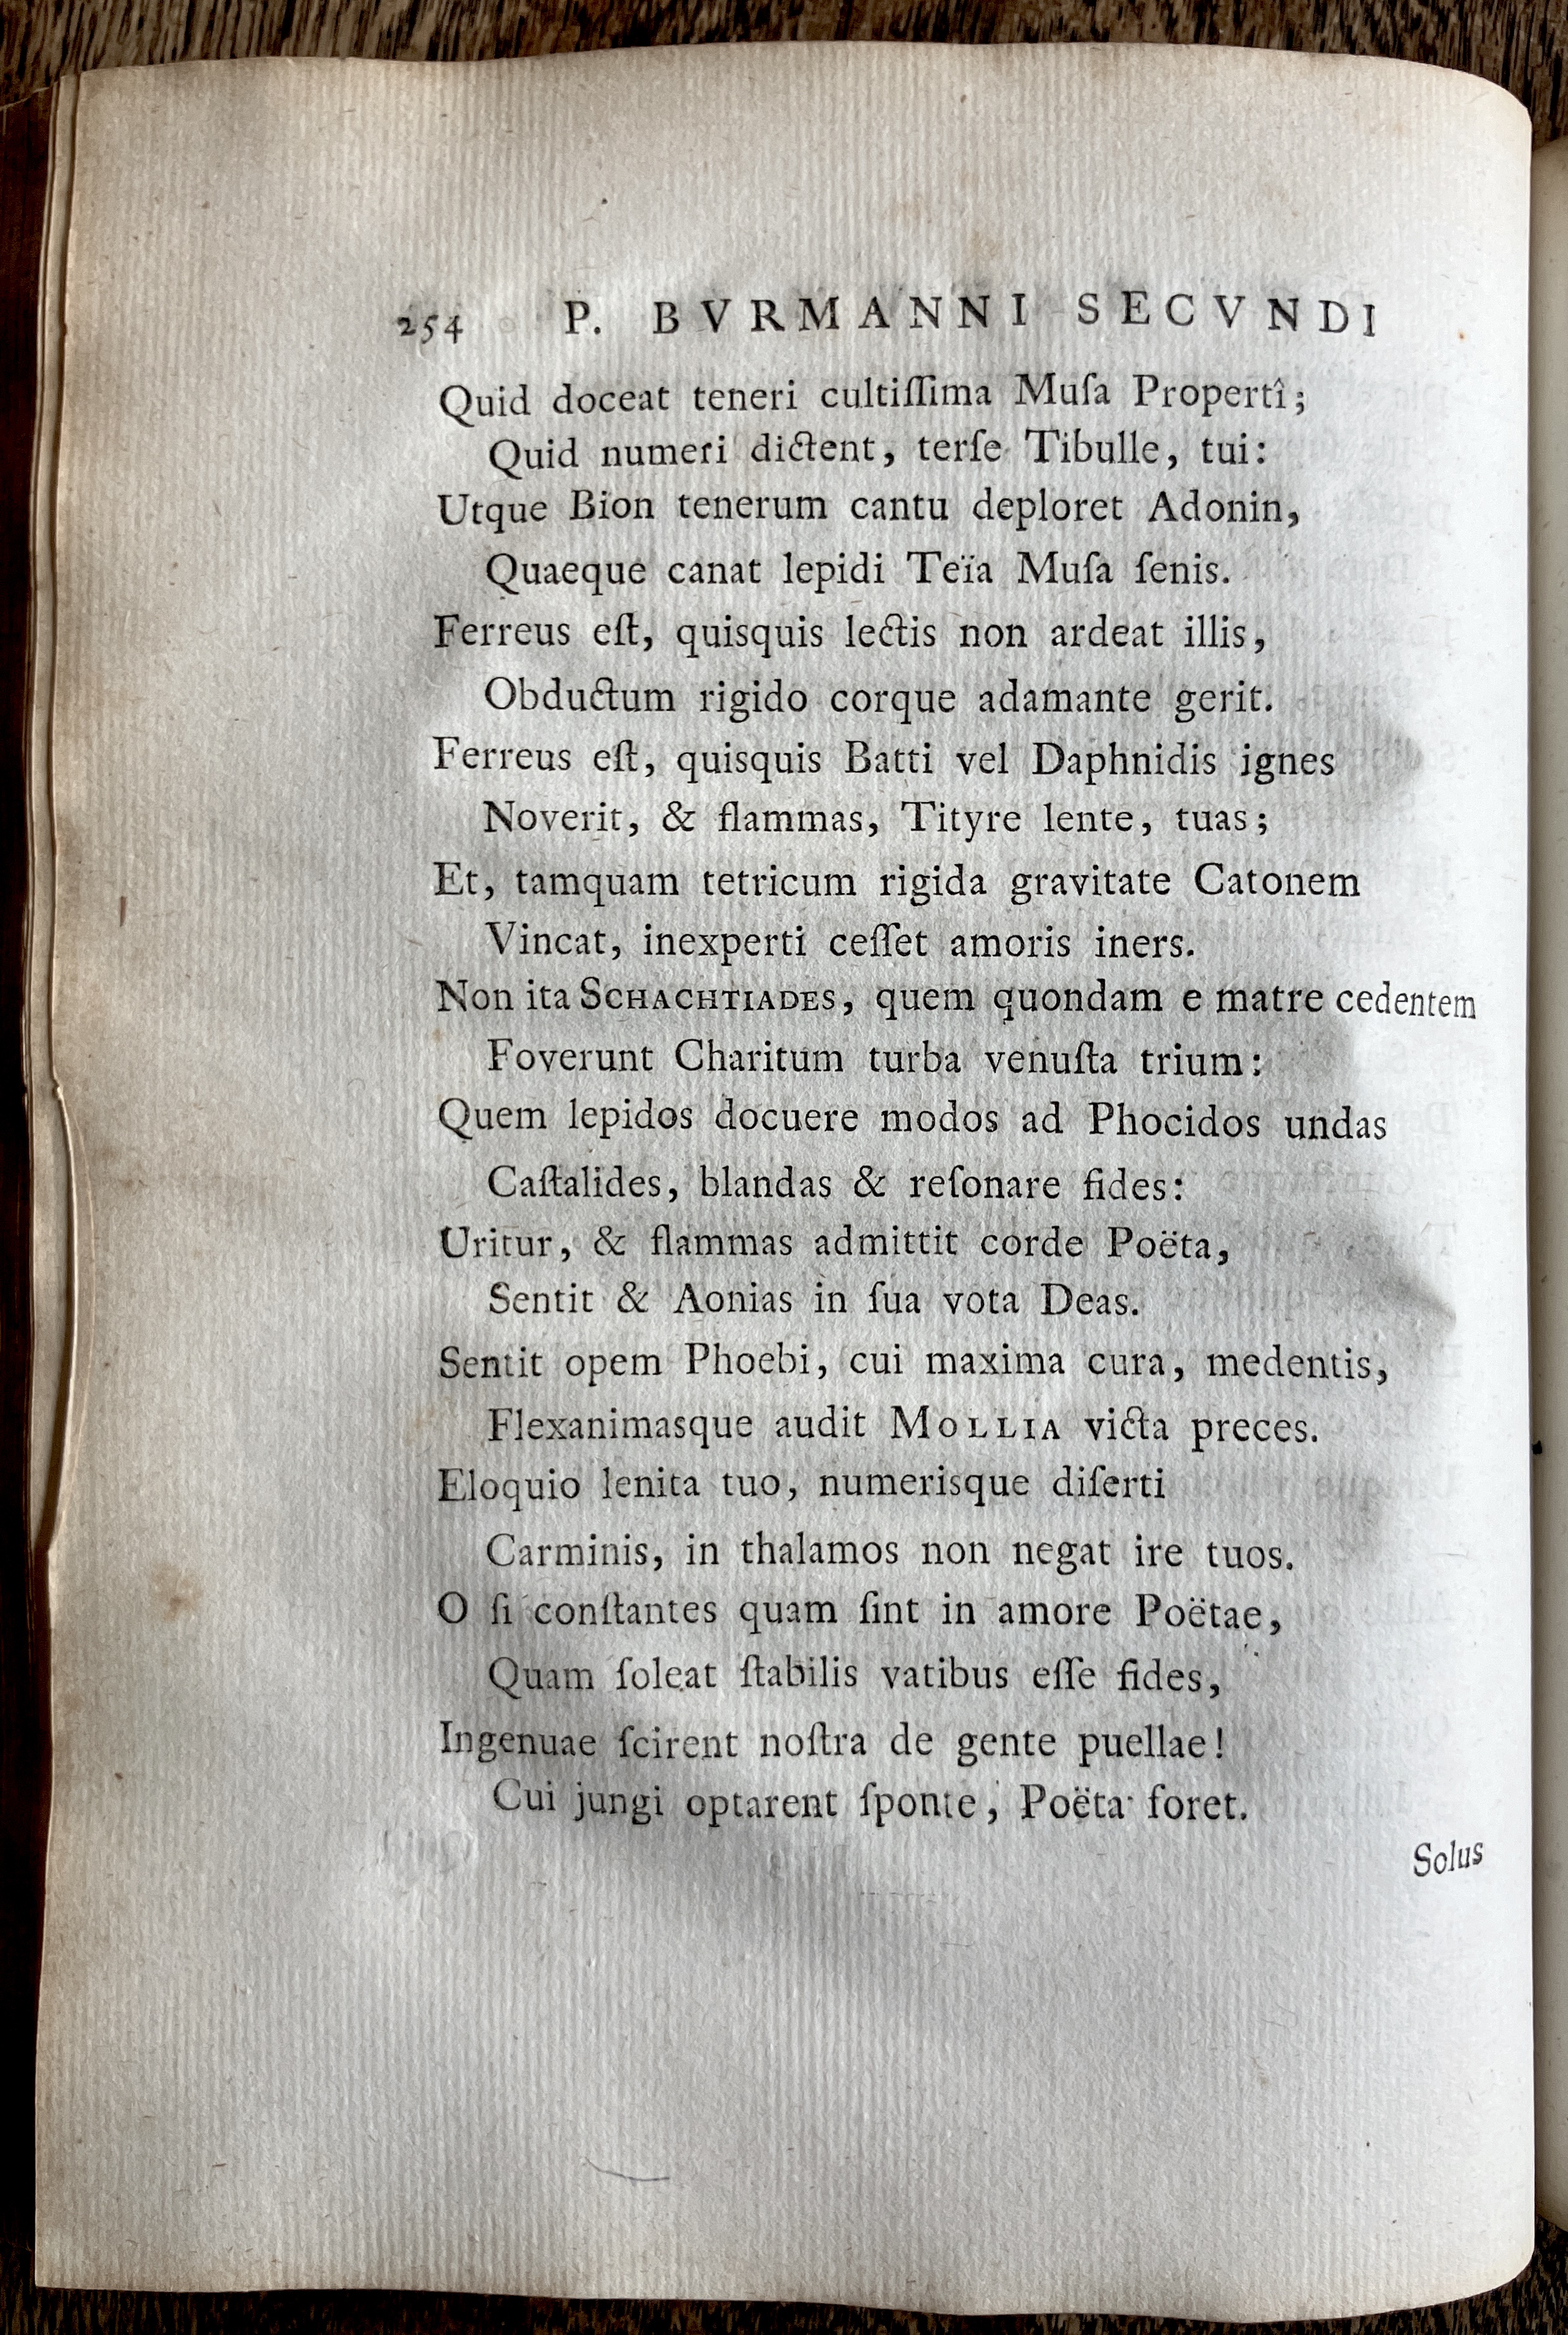 254 P. BVRMANNI SECVNDI
Quid doceat teneri cultiſſima Muſa Propertî;
Quid numeri dictent, terſe Tibulle, tui:
Utque Bion tenerum cantu deploret Adonin,
Quaeque canat lepidi Teïa Muſa ſenis.
Ferreus eſt, quisquis lectis non ardeat illis,
Obductum rigido corque adamante gerit.
Ferreus eſt, quisquis Batti vel Daphnidis ignes
Noverit, & flammas, Tityre lente, tuas;
Et, tamquam tetricum rigida gravitate Catonem
Vincat, inexperti ceſſet amoris iners.
Non ita SCHACHTIADES, quem quondam e matre cedentem
Foverunt Charitum turba venuſta trium:
Quem lepidos docuere modos ad Phocidos undas
Caſtalides, blandas & reſonare fides:
Uritur, & flammas admittit corde Poëta,
Sentit & Aonias in ſua vota Deas.
Sentit opem Phoebi, cui maxima cura, medentis,
Flexanimasque audit MOLLIA victa preces.
Eloquio lenita tuo, numerisque diſerti
Carminis, in thalamos non negat ire tuos.
O ſi conſtantes quam ſint in amore Poëtae,
Quam ſoleat ſtabilis vatibus eſſe fides,
Ingenuae ſcirent noſtra de gente puellae!
Cui jungi optarent ſponte, Poëta foret.
Solus